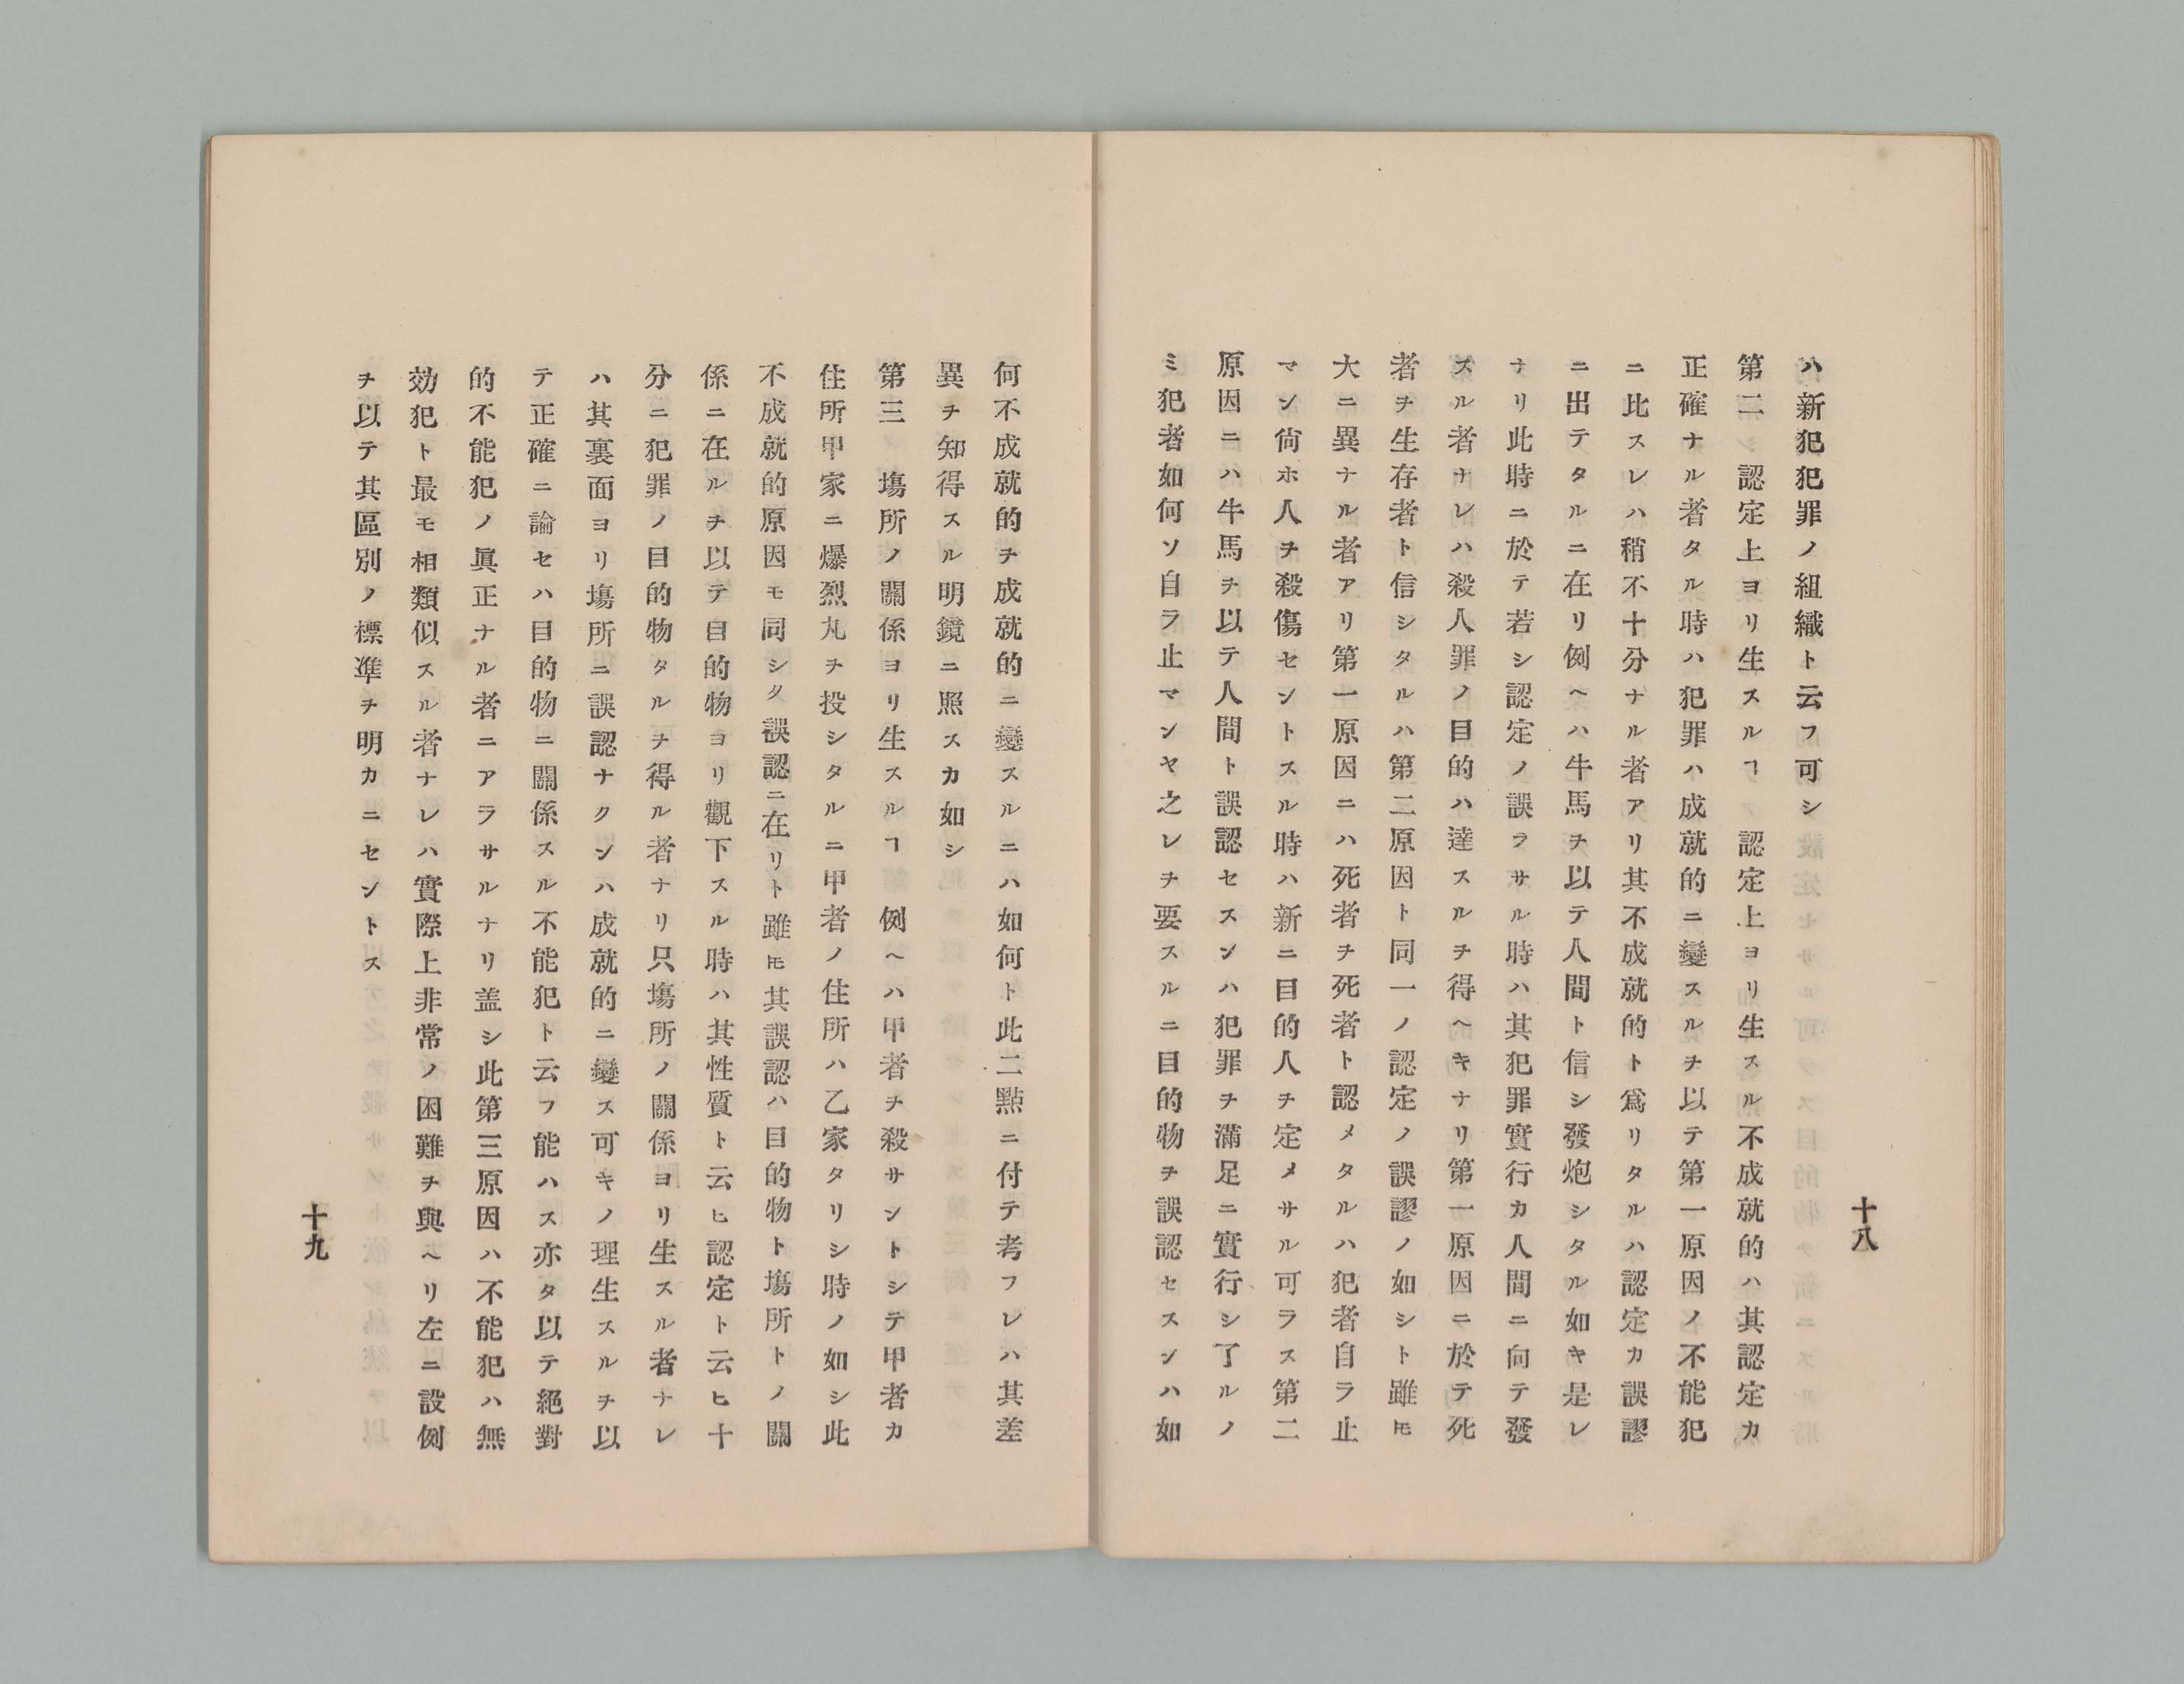 十八
ハ新犯犯罪ノ組織ト云フ可シ
第二　認定上ヨリ生スルヿ　認定上ヨリ生スル不成就的ハ其認定カ
正確ナル者タル時ハ犯罪ハ成就的ニ變スルヲ以テ第一原因ノ不能犯
ニ比スレハ稍不十分ナル者アリ其不成就的ト爲リタルハ認定カ誤謬
ニ出テタルニ在リ例ヘハ牛馬ヲ以テ人間ト信シ發炮シタル如キ是レ
ナリ此時ニ於テ若シ認定ノ誤ラサル時ハ其犯罪實行カ人間ニ向テ發
スル者ナレハ殺人罪ノ目的ハ達スルヲ得ヘキナリ第一原因ニ於テ死
者ヲ生存者ト信シタルハ第二原因ト同一ノ認定ノ誤謬ノ如シト雖𪜈
大ニ異ナル者アリ第一原因ニハ死者ヲ死者ト認メタルハ犯者自ラ止
マン尙ホ人ヲ殺傷セントスル時ハ新ニ目的人ヲ定メサル可ラス第二
原因ニハ牛馬ヲ以テ人間ト誤認セスンハ犯罪ヲ滿足ニ實行シ了ルノ
ミ犯者如何ソ自ラ止マンヤ之レヲ要スルニ目的物ヲ誤認セスンハ如
何不成就的ヲ成就的ニ變スルニハ如何ト此二點ニ付テ考フレハ其差
異ヲ知得スル明鏡ニ照スカ如シ
第三　塲所ノ關係ヨリ生スルヿ　例ヘハ甲者ヲ殺サントシテ甲者カ
住所甲家ニ爆烈丸ヲ投シタルニ甲者ノ住所ハ乙家タリシ時ノ如シ此
不成就的原因モ同シク誤認ニ在リト雖𪜈其誤認ハ目的物ト塲所トノ關
係ニ在ルヲ以テ目的物ヨリ觀下スル時ハ其性質ト云ヒ認定ト云ヒ十
分ニ犯罪ノ目的物タルヲ得ル者ナリ只塲所ノ關係ヨリ生スル者ナレ
ハ其裏面ヨリ塲所ニ誤認ナクンハ成就的ニ變ス可キノ理生スルヲ以
テ正確ニ論セハ目的物ニ關係スル不能犯ト云フ能ハス亦タ以テ絕對
的不能犯ノ眞正ナル者ニアラサルナリ盖シ此第三原因ハ不能犯ハ無
効犯ト最モ相類似スル者ナレハ實際上非常ノ困難ヲ與ヘリ左ニ設例
ヲ以テ其區別ノ標準ヲ明カニセントス
十九